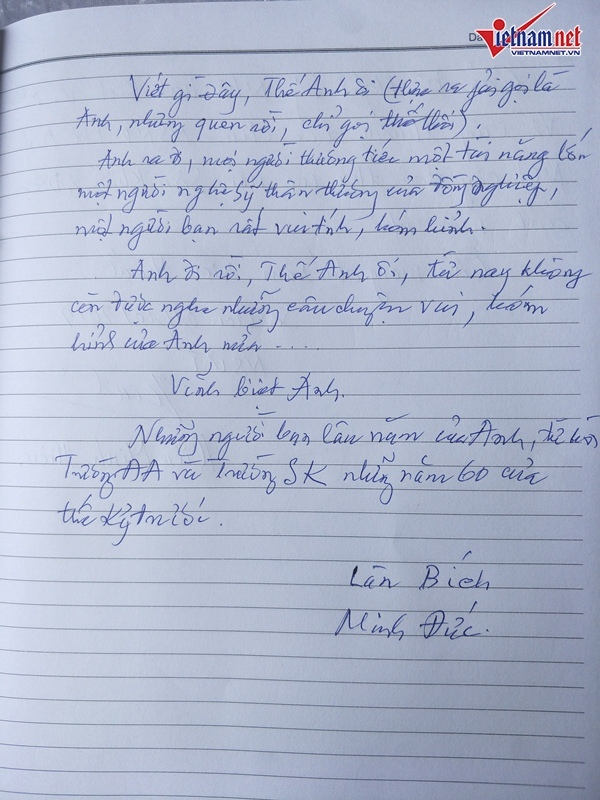 Vietnamnet
VIETNAMNET.VN
Da
Viết gì đây, Thế Anh ơi (thừa ra phải gọi là
Anh, nhưng quen rồi, chỉ gọi thế thôi).
Anh ra đi, mọi người thương tiếc một tài năng lớn
một người nghệ sỹ thân thương của đồng nghiệp,
một người bạn rất vui tính, hóm hỉnh.
Anh đi rồi, Thế Anh ơi, từ nay không
còn được nghe những câu chuyện vui, hóm
hỉnh của Anh nữa .....
Vĩnh biệt Anh.
Những người bạn lâu năm của Anh, từ hồi
Trường ĐA và Trường SK những năm 60 của
thế kỷ trước.
Lân Bích
Minh Đức.